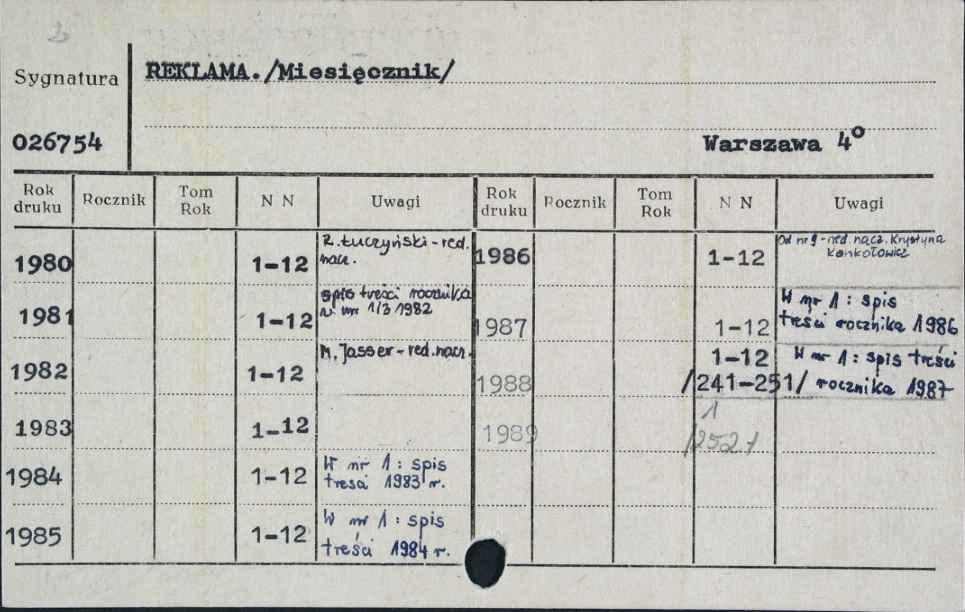 Sygnatura
REKLAMA./Miesięcznik/
026754
Warszawa 4o
Rok druku Rocznik Tom Rok N N Uwagi Rok druku Rocznik Tom Rok N N Uwagi
1980 1-12 R. Łuczyński - red. nacz.
1981 1-12 spis treści rocznika w nr 1/3 1982
1982 1-12 M. Jasser - red. nacz.
1983 1-12
1984 1-12 W nr 1 : spis treści 1983 r.
1985 1-12 W nr 1 : spis treści 1984 r.
1986 1-12 Od nr 9 - red. nacz. Krystyna Konkołowicz
1987 1-12 W nr 1 : spis treści rocznika 1986
1988 1-12 /241-251/ W nr 1 : spis treści rocznika 1987
1989 1 /252/